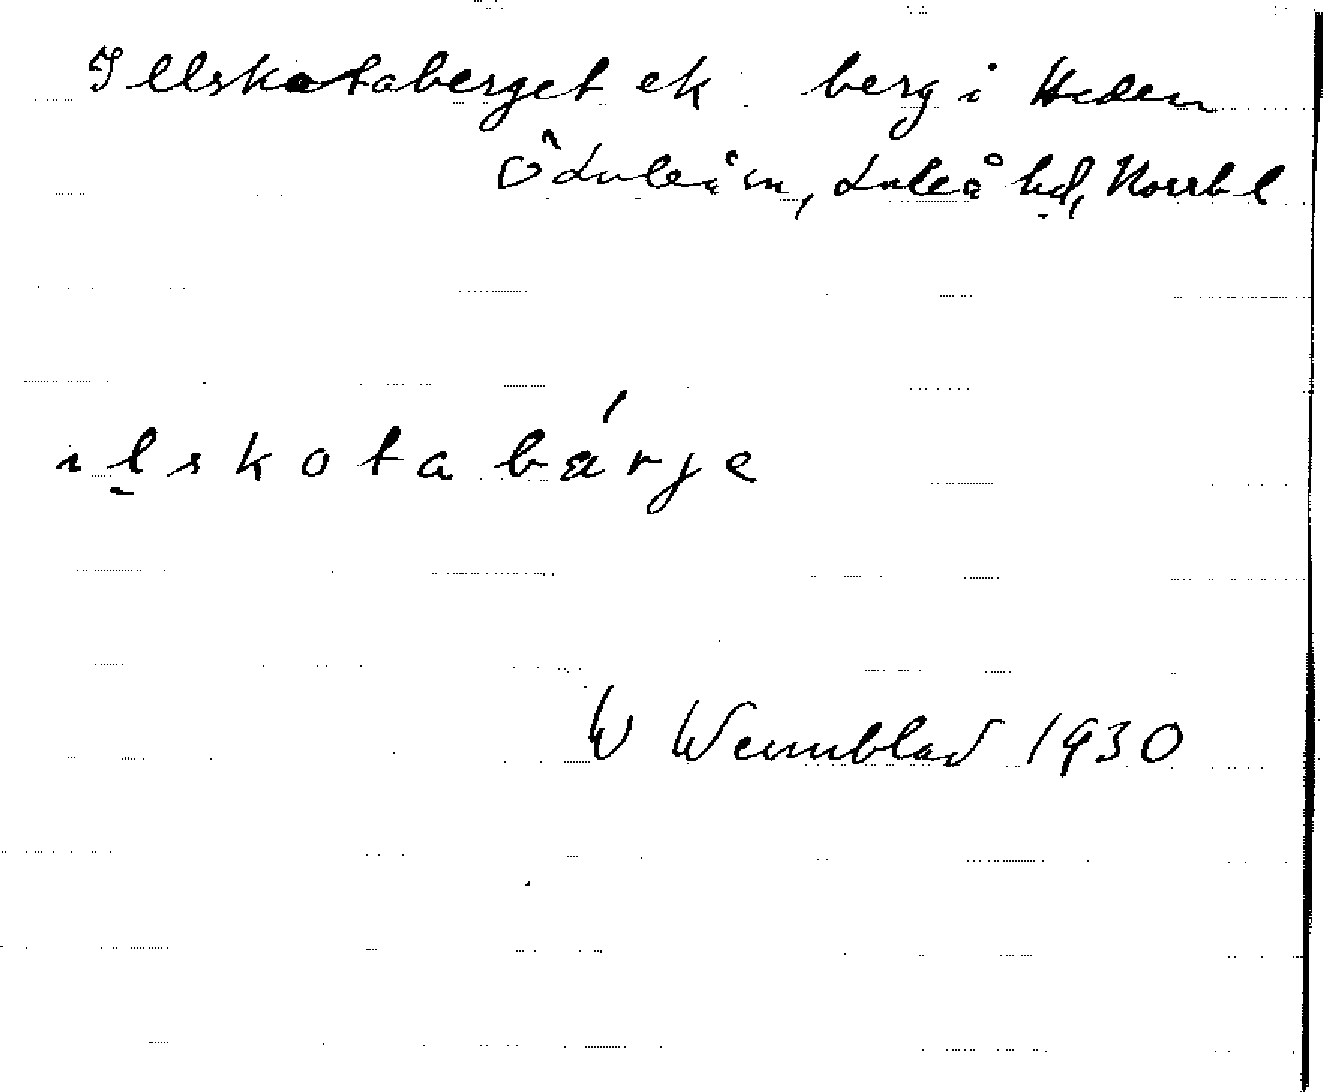 Illskotaberget ek berg i Heden
Ö Luleå sn, Luleå hd, Norrb l
ilskotabárje
W Wennblad 1930